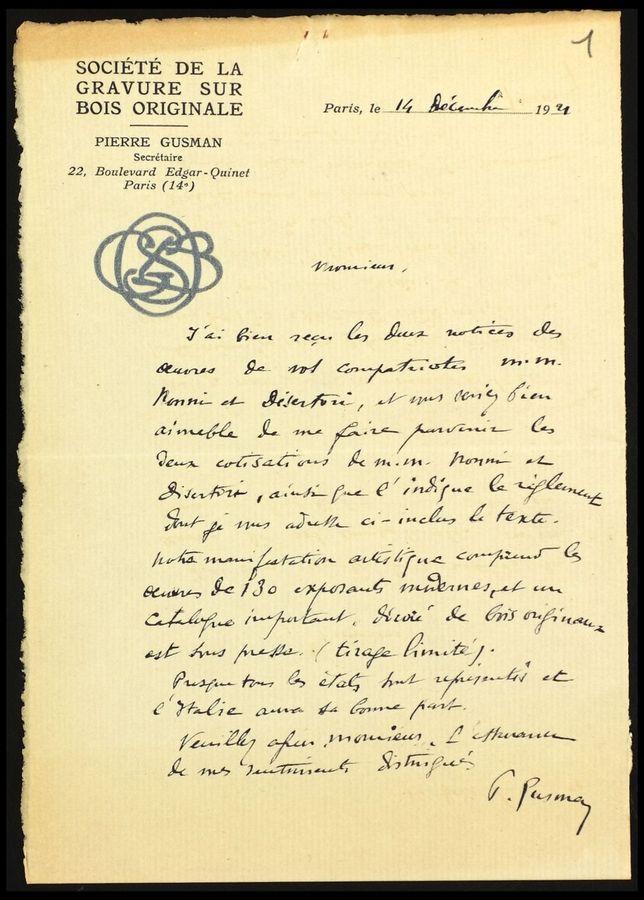 1
SOCIÉTÉ DE LA
GRAVURE SUR
BOIS ORIGINALE
Paris, le 14 Décembre 1921
PIERRE GUSMAN
Secrétaire
22, Boulevard Edgar-Quinet
Paris (14e)
SGBO
Monsieur,
J'ai bien reçu les deux notices des
œuvres de vos compatriotes m.m.
Nonni et Disertori, et vous seriez bien
aimable de me faire parvenir les
deux cotisations de m.m. Nonni et
Disertori, ainsi que l'indique le règlement
dont je vous adresse ci-inclus le texte.
Notre manifestation artistique comprend les
œuvres de 130 exposants modernes, et un
catalogue important, décoré de bois originaux
est sous presse. (tirage limité).
Presque tous les états sont représentés et
l'Italie aura sa bonne part.
Veuillez agréer, monsieur, l'assurance
de mes sentiments distingués
P. Gusman